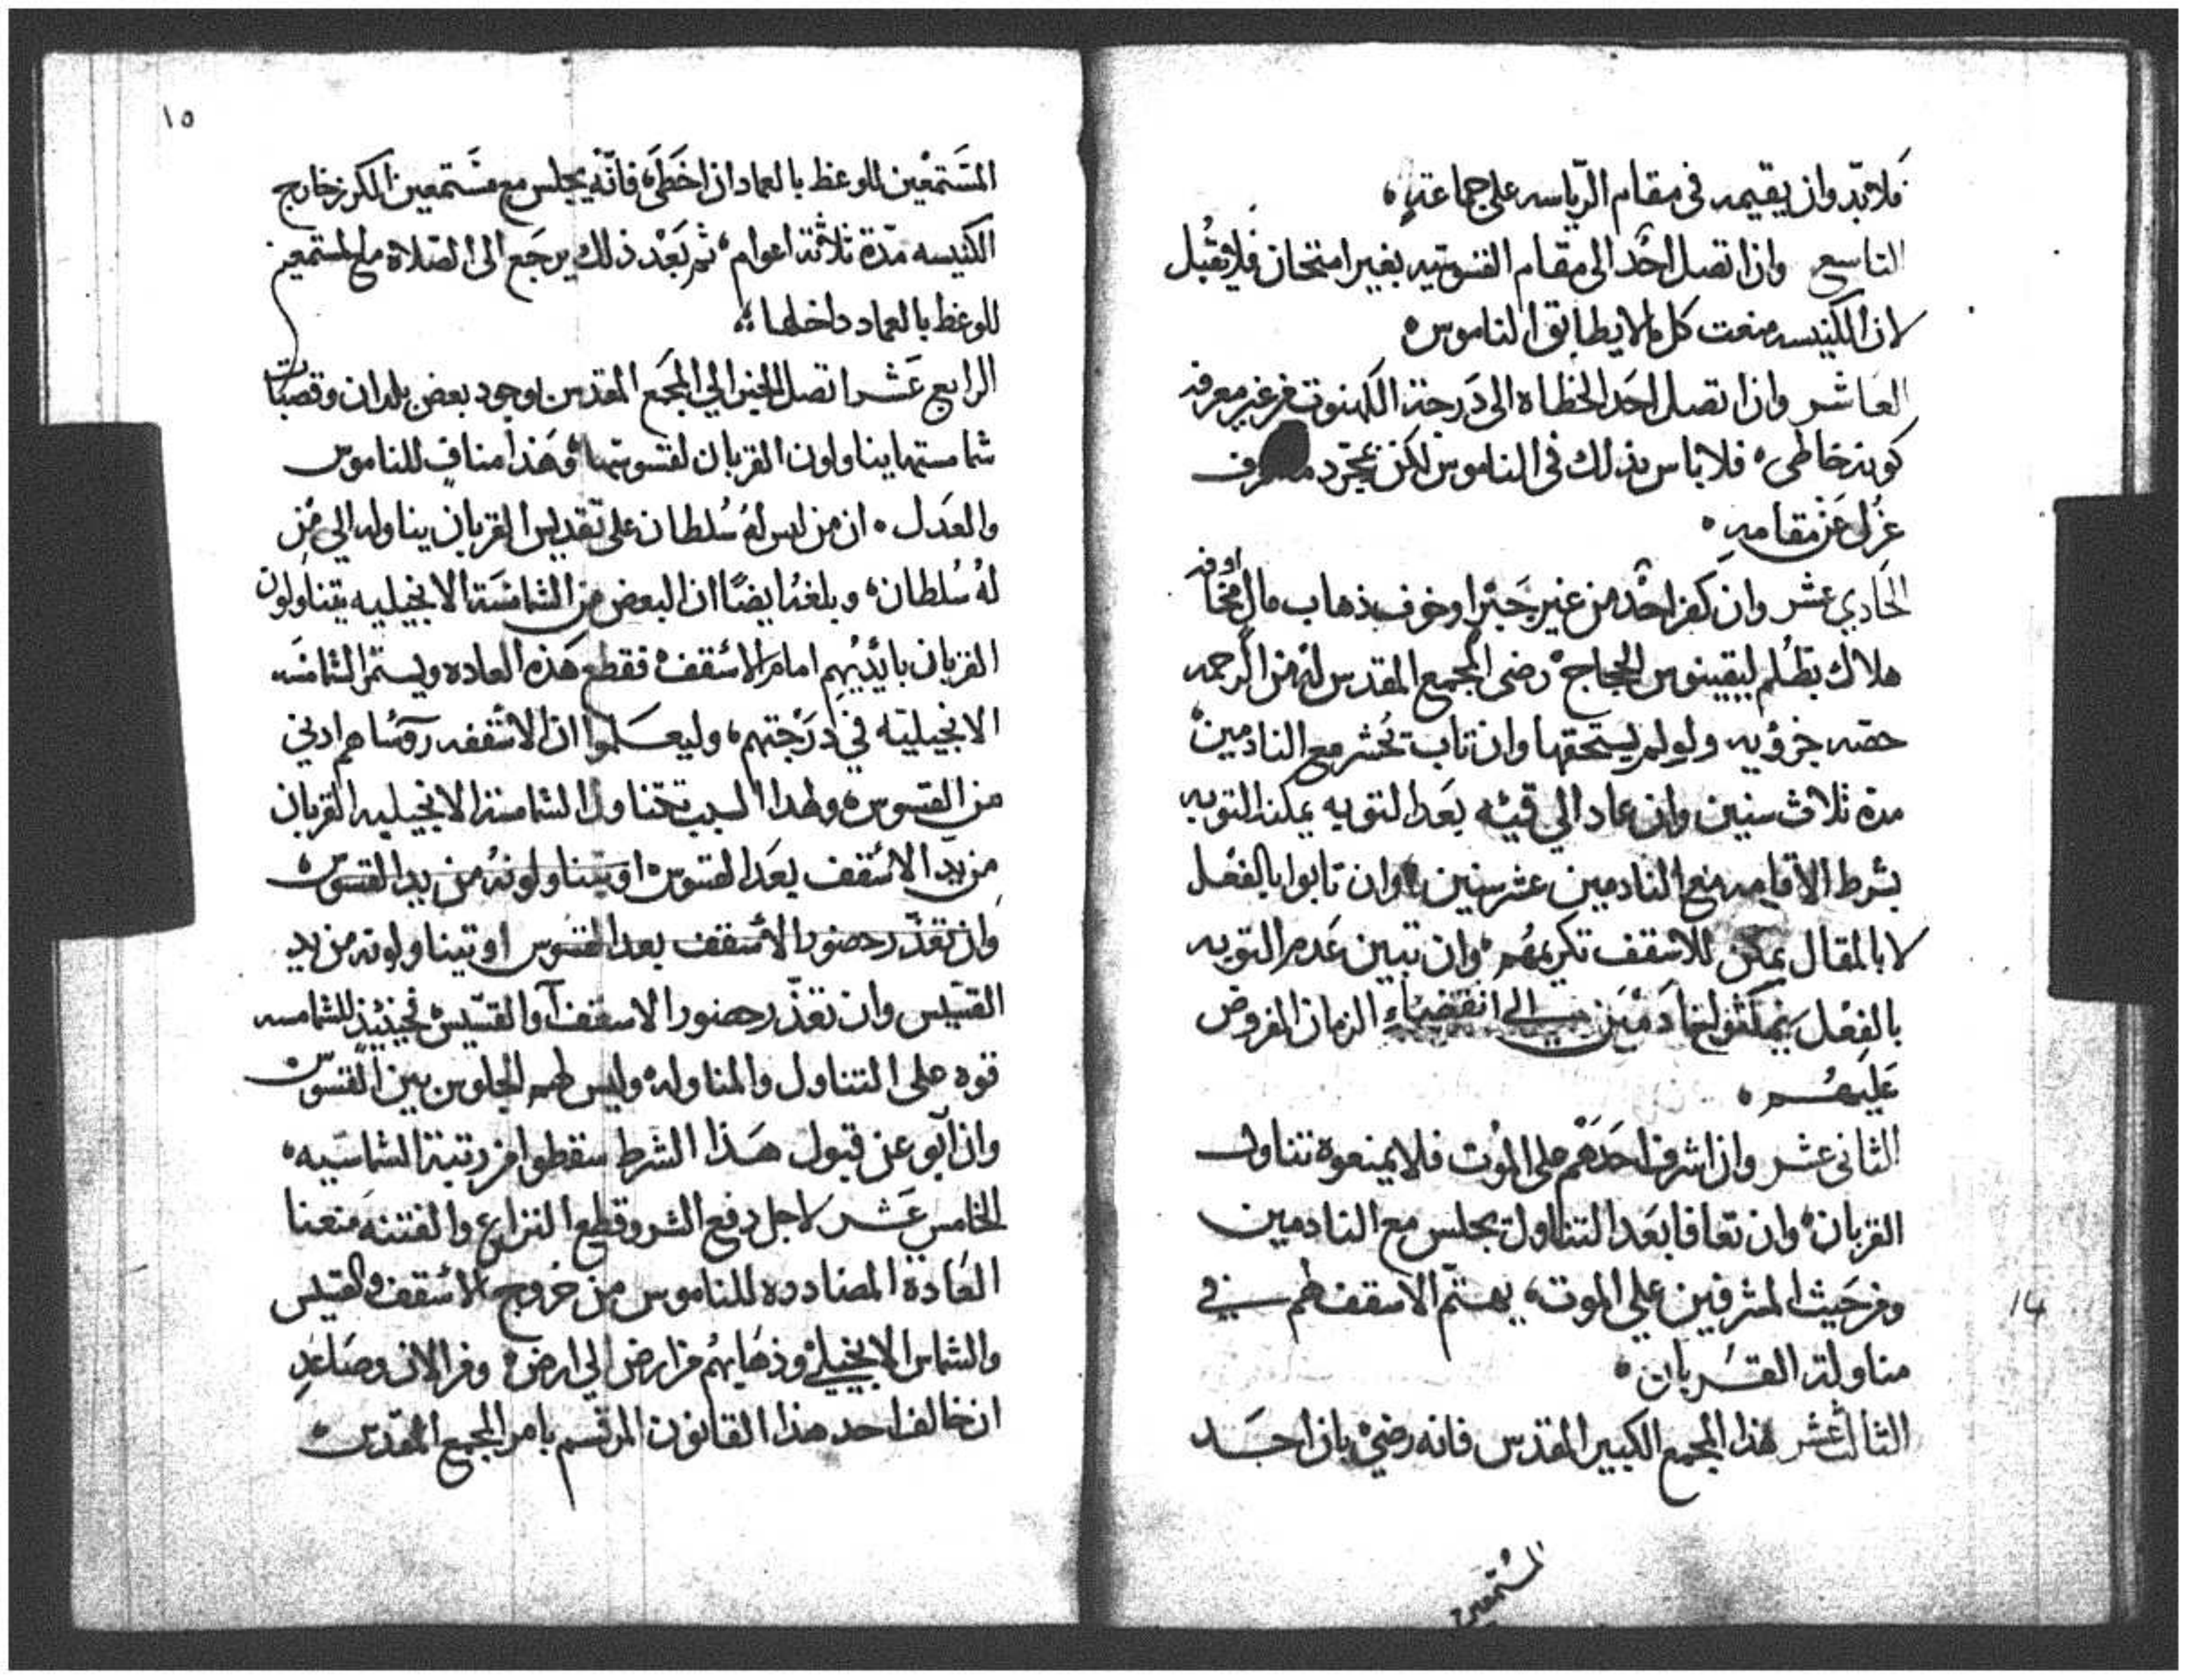 فلابد وان يقيمه في مقام الرياسه على جماعته
التاسع وان اتصل احد الى مقام القسوسيه بغير امتحان فلا يقبل
لان الكنيسه منعت كل ما لا يطابق الناموس
العاشر وان اتصل احد الخطاة الى درجة الكهنوت من غير معرفة
كونه خاطى فلا باس بذلك في الناموس لكن بمجرد
عزل عن مقامه
الحادي عشر وان كفر احد من غير جبر او خوف ذهاب مال او مخافة
هلاك بظلم ليقينوس الحجاج رضى المجمع المقدس له من الرحمه
حصه جزؤيه ولو لم يستحقها وان تاب يحشر مع النادمين
مدة ثلاث سنين وان عاد الي قيئه بعد التوبه يمكنه التوبه
بشرط الاقامه مع النادمين عشر سنين وان تابوا بالفعل
لا بالمقال يمكن للاسقف تكريمهم وان تبين عدم التوبه
بالفعل الي انقضاء الزمان المفروض
عليهم
الثاني عشر وان اشرف احدهم على الموت فلا يمنعوه تناول
القربان وان تعافا بعد التناول يجلس مع النادمين
ومن حيث المشرفين علي الموت يهتم الاسقف لهم في
مناولة القربان
14
الثالث عشر هذا المجمع الكبير المقدس فانه رضي بان احد
المستمعين
١٥
المستمعين للوعظ بالعماد ان اخطى فانه يجلس مع مستمعين الكرز خارج
الكنيسه مدة ثلاثة اعوام ثم بعد ذلك يرجع الى الصلاة مع المستمعين
للوعظ بالعماد داخلها
الرابع عشر اتصل الخبر الي المجمع المقدس بوجود بعض بلدان وقصبات
شمامستها يناولون القربان لقسوسها وهذا مناف للناموس
والعدل ان من ليس له سلطان على تقديس القربان يناوله الي من
له سلطان وبلغنا ايضا ان البعض من الشمامسة الانجيليه يتناولون
القربان بايديهم امام الاسقف فقطع هذه العاده ويستمر الشمامسه
الانجيليه في درجتهم وليعلموا ان الاسقفه روساهم ادنى
من القسوس ولهذا السبب تتناول الشمامسة الانجيليه القربان
من يد الاسقف بعد القسوس او يتناولونه من يد القسوس
وان تعذر حضور الاسقف بعد القسوس او يتناولونه من يد
القسيس وان تعذر حضور الاسقف او القسيس فحينئذ للشمامسه
قوه على التناول والمناوله وليس لهم الجلوس بين القسوس
وان ابو عن قبول هذا الشرط سقطوا من رتبة الشماسيه
الخامس عشر لاجل دفع الشر وقطع النزاع والفتنه منعنا
العادة المضادده للناموس من خروج الاسقف والقسيس
والشماس الانجيلي وذهابهم من ارض الي ارض ومن الان وصاعد
ان خالف احد هذا القانون المرتسم بامر المجمع المقدس